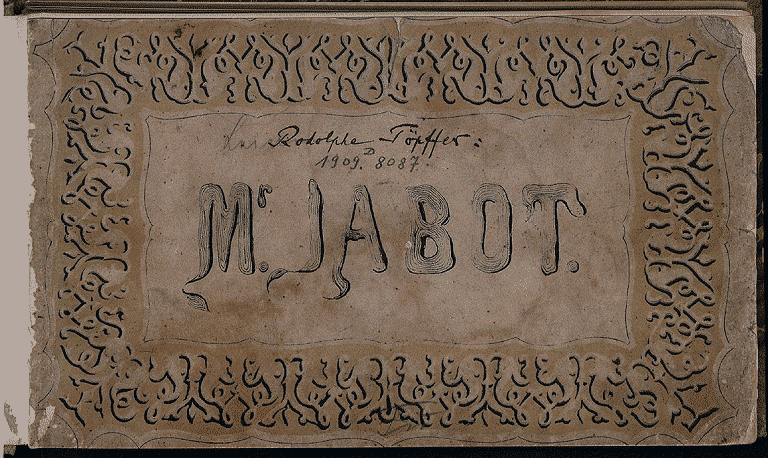 Rodolphe Töpffer:
1909. D 8087.
Mr. JABOT.